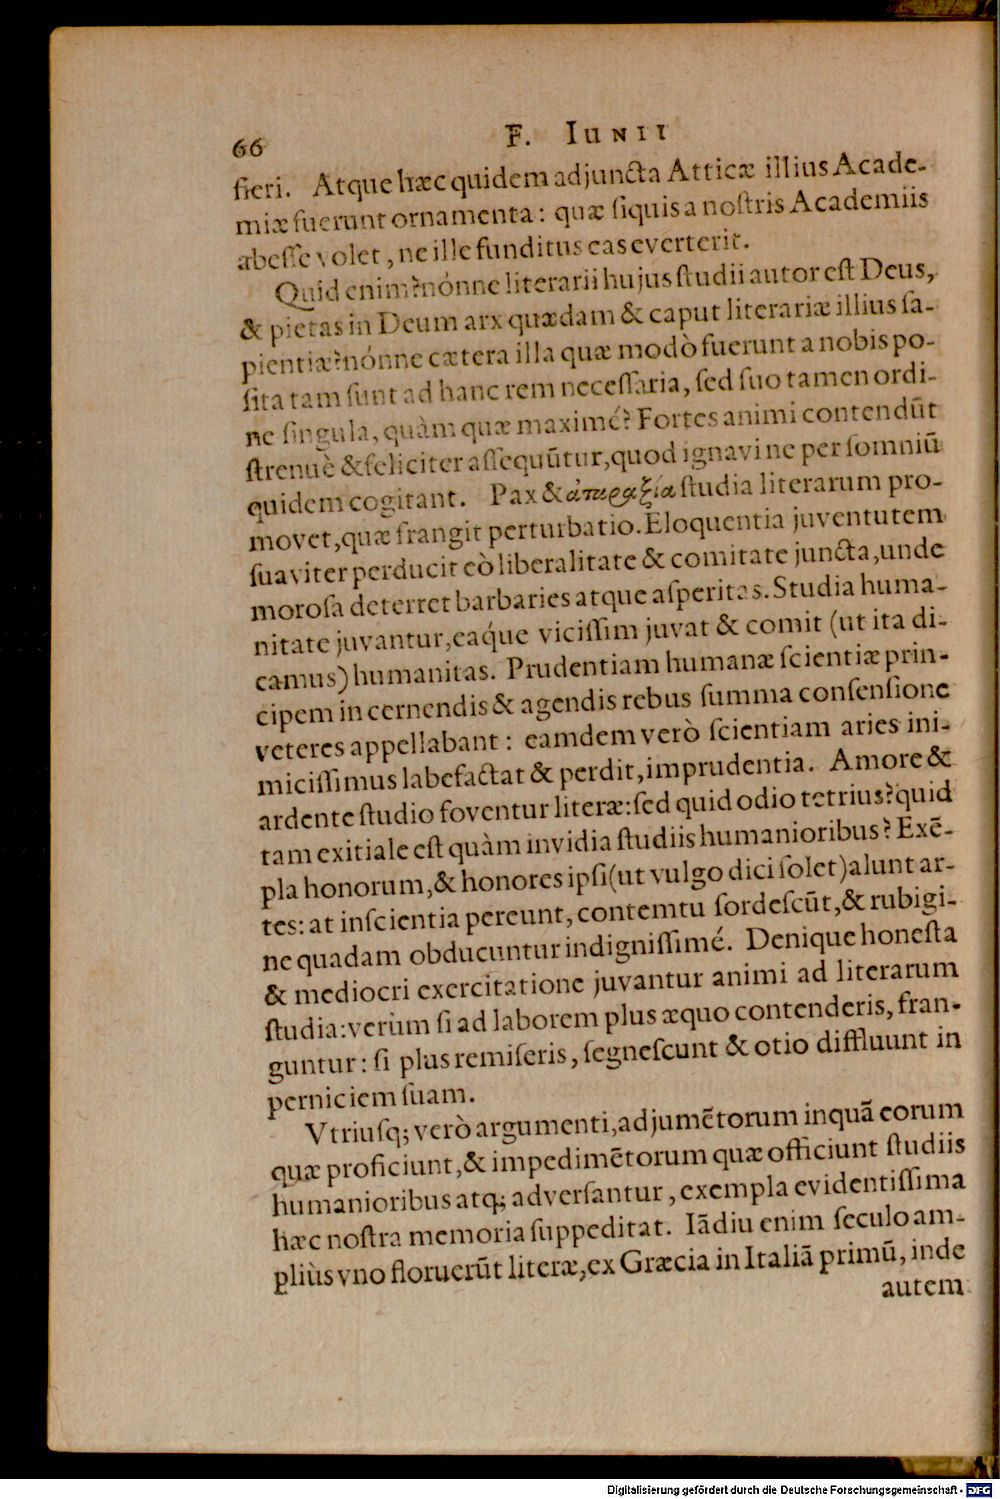 66 F. Iunii
fieri. Atque hæc quidem adjuncta Atticæ illius Acade-
miæ fuerunt ornamenta: quæ ſiquis a noſtris Academiis
abeſſe volet, ne ille funditus eas everterit.
Quid enim? nónne literarii hujus ſtudii autor eſt Deus,
& pietas in Deum arx quædam & caput literariæ illius ſa-
pientiæ? nónne cætera illa quæ modò fuerunt a nobis po-
ſita tam ſunt ad hanc rem neceſſaria, ſed ſuo tamen ordi-
ne ſingula, quàm quæ maximé? Fortes animi contendūt
ſtrenuè & feliciter aſſequūtur, quod ignavi ne per ſomniū
quidem cogitant. Pax & ἀπραξία ſtudia literarum pro-
movet, quæ frangit perturbatio. Eloquentia juventutem
ſuaviter perducit eò liberalitate & comitate juncta, unde
moroſa deterret barbaries atque aſperitas. Studia huma-
nitate juvantur, eaq́ue viciſſim juvat & comit (ut ita di-
camus) humanitas. Prudentiam humanæ ſcientiæ prin-
cipem in cernendis & agendis rebus ſumma conſenſione
veteres appellabant: eamdem verò ſcientiam aries ini-
miciſſimus labefactat & perdit, imprudentia. Amore &
ardente ſtudio foventur literæ: ſed quid odio tetrius? quid
tam exitiale eſt quàm invidia ſtudiis humanioribus? Exē-
pla honorum, & honores ipſi (ut vulgo dici ſolet) alunt ar-
tes: at inſcientia pereunt, contemtu ſordeſcūt, & rubigi-
ne quadam obducuntur indigniſſimé. Denique honeſta
& mediocri exercitatione juvantur animi ad literarum
ſtudia: verùm ſi ad laborem plus æquo contenderis, fran-
guntur: ſi plus remiſeris, ſegneſcunt & otio diffluunt in
perniciem ſuam.
Vtriuſq; verò argumenti, adjumētorum inquā eorum
quæ proficiunt, & impedimētorum quæ officiunt ſtudiis
humanioribus atq; adverſantur, exempla evidentiſſima
hæc noſtra memoria ſuppeditat. Iādiu enim ſeculo am-
pliùs vno floruerūt literæ, ex Græcia in Italiā primū, inde
autem
Digitalisierung gefördert durch die Deutsche Forschungsgemeinschaft - DFG